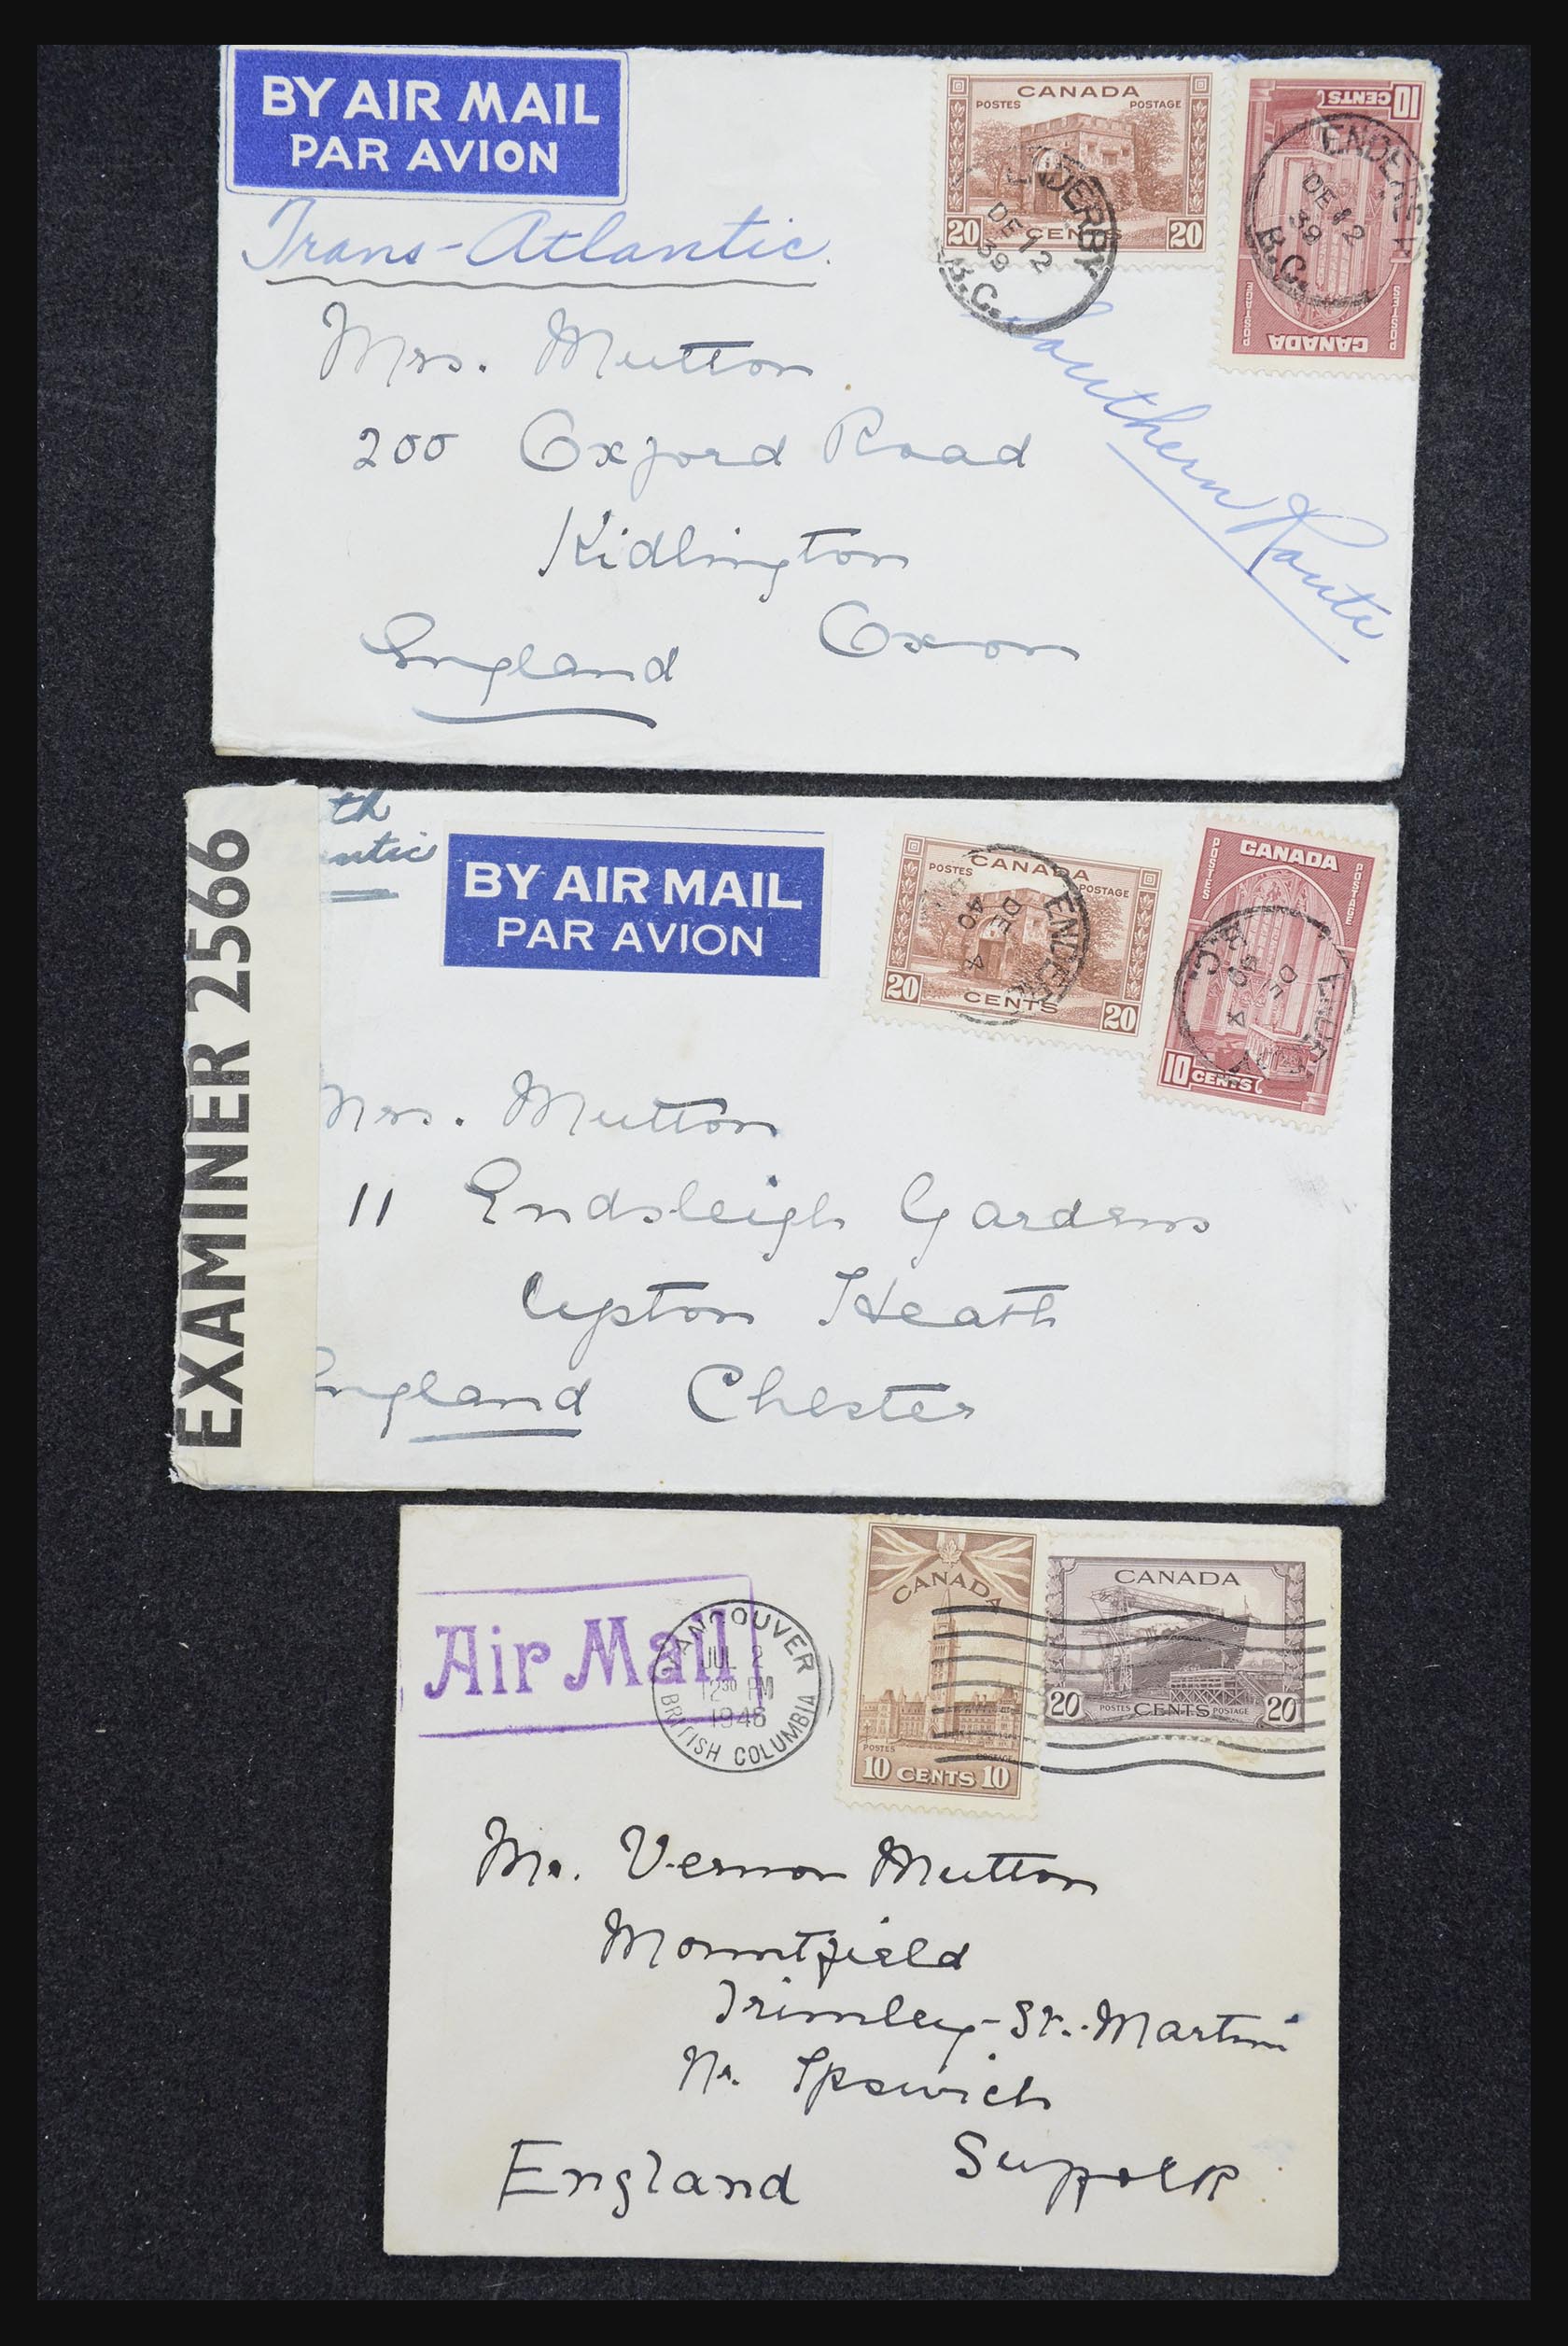 BY AIR MAIL
PAR AVION
Trans-Atlantic.
CANADA
POSTES POSTAGE
20 CENTS 20
10 CENTS
CANADA
POSTES POSTAGE
ENDERBY
DE 12
39
B.C.
ENDERBY
DE 12
39
B.C.
Southern Route
Mrs. Mutton
200 Oxford Road
Kidlington
England Oxon
EXAMINER 2566
th
ntic
BY AIR MAIL
PAR AVION
CANADA
POSTES POSTAGE
20 CENTS 20
DE 4
40
CANADA
POSTES POSTAGE
10 CENTS
DE 4
40
Mrs. Mutton
11 Endsleigh Gardens
Upton Heath
England Chester
Air Mail
VANCOUVER
JUL 2
12 30 PM
BRITISH COLUMBIA
CANADA
POSTES POSTAGE
10 CENTS 10
CANADA
20 POSTES CENTS POSTAGE 20
Mr. Vernon Mutton
Mountfield
Trimley-St.-Martin
Nr. Ipswich
England Suffolk